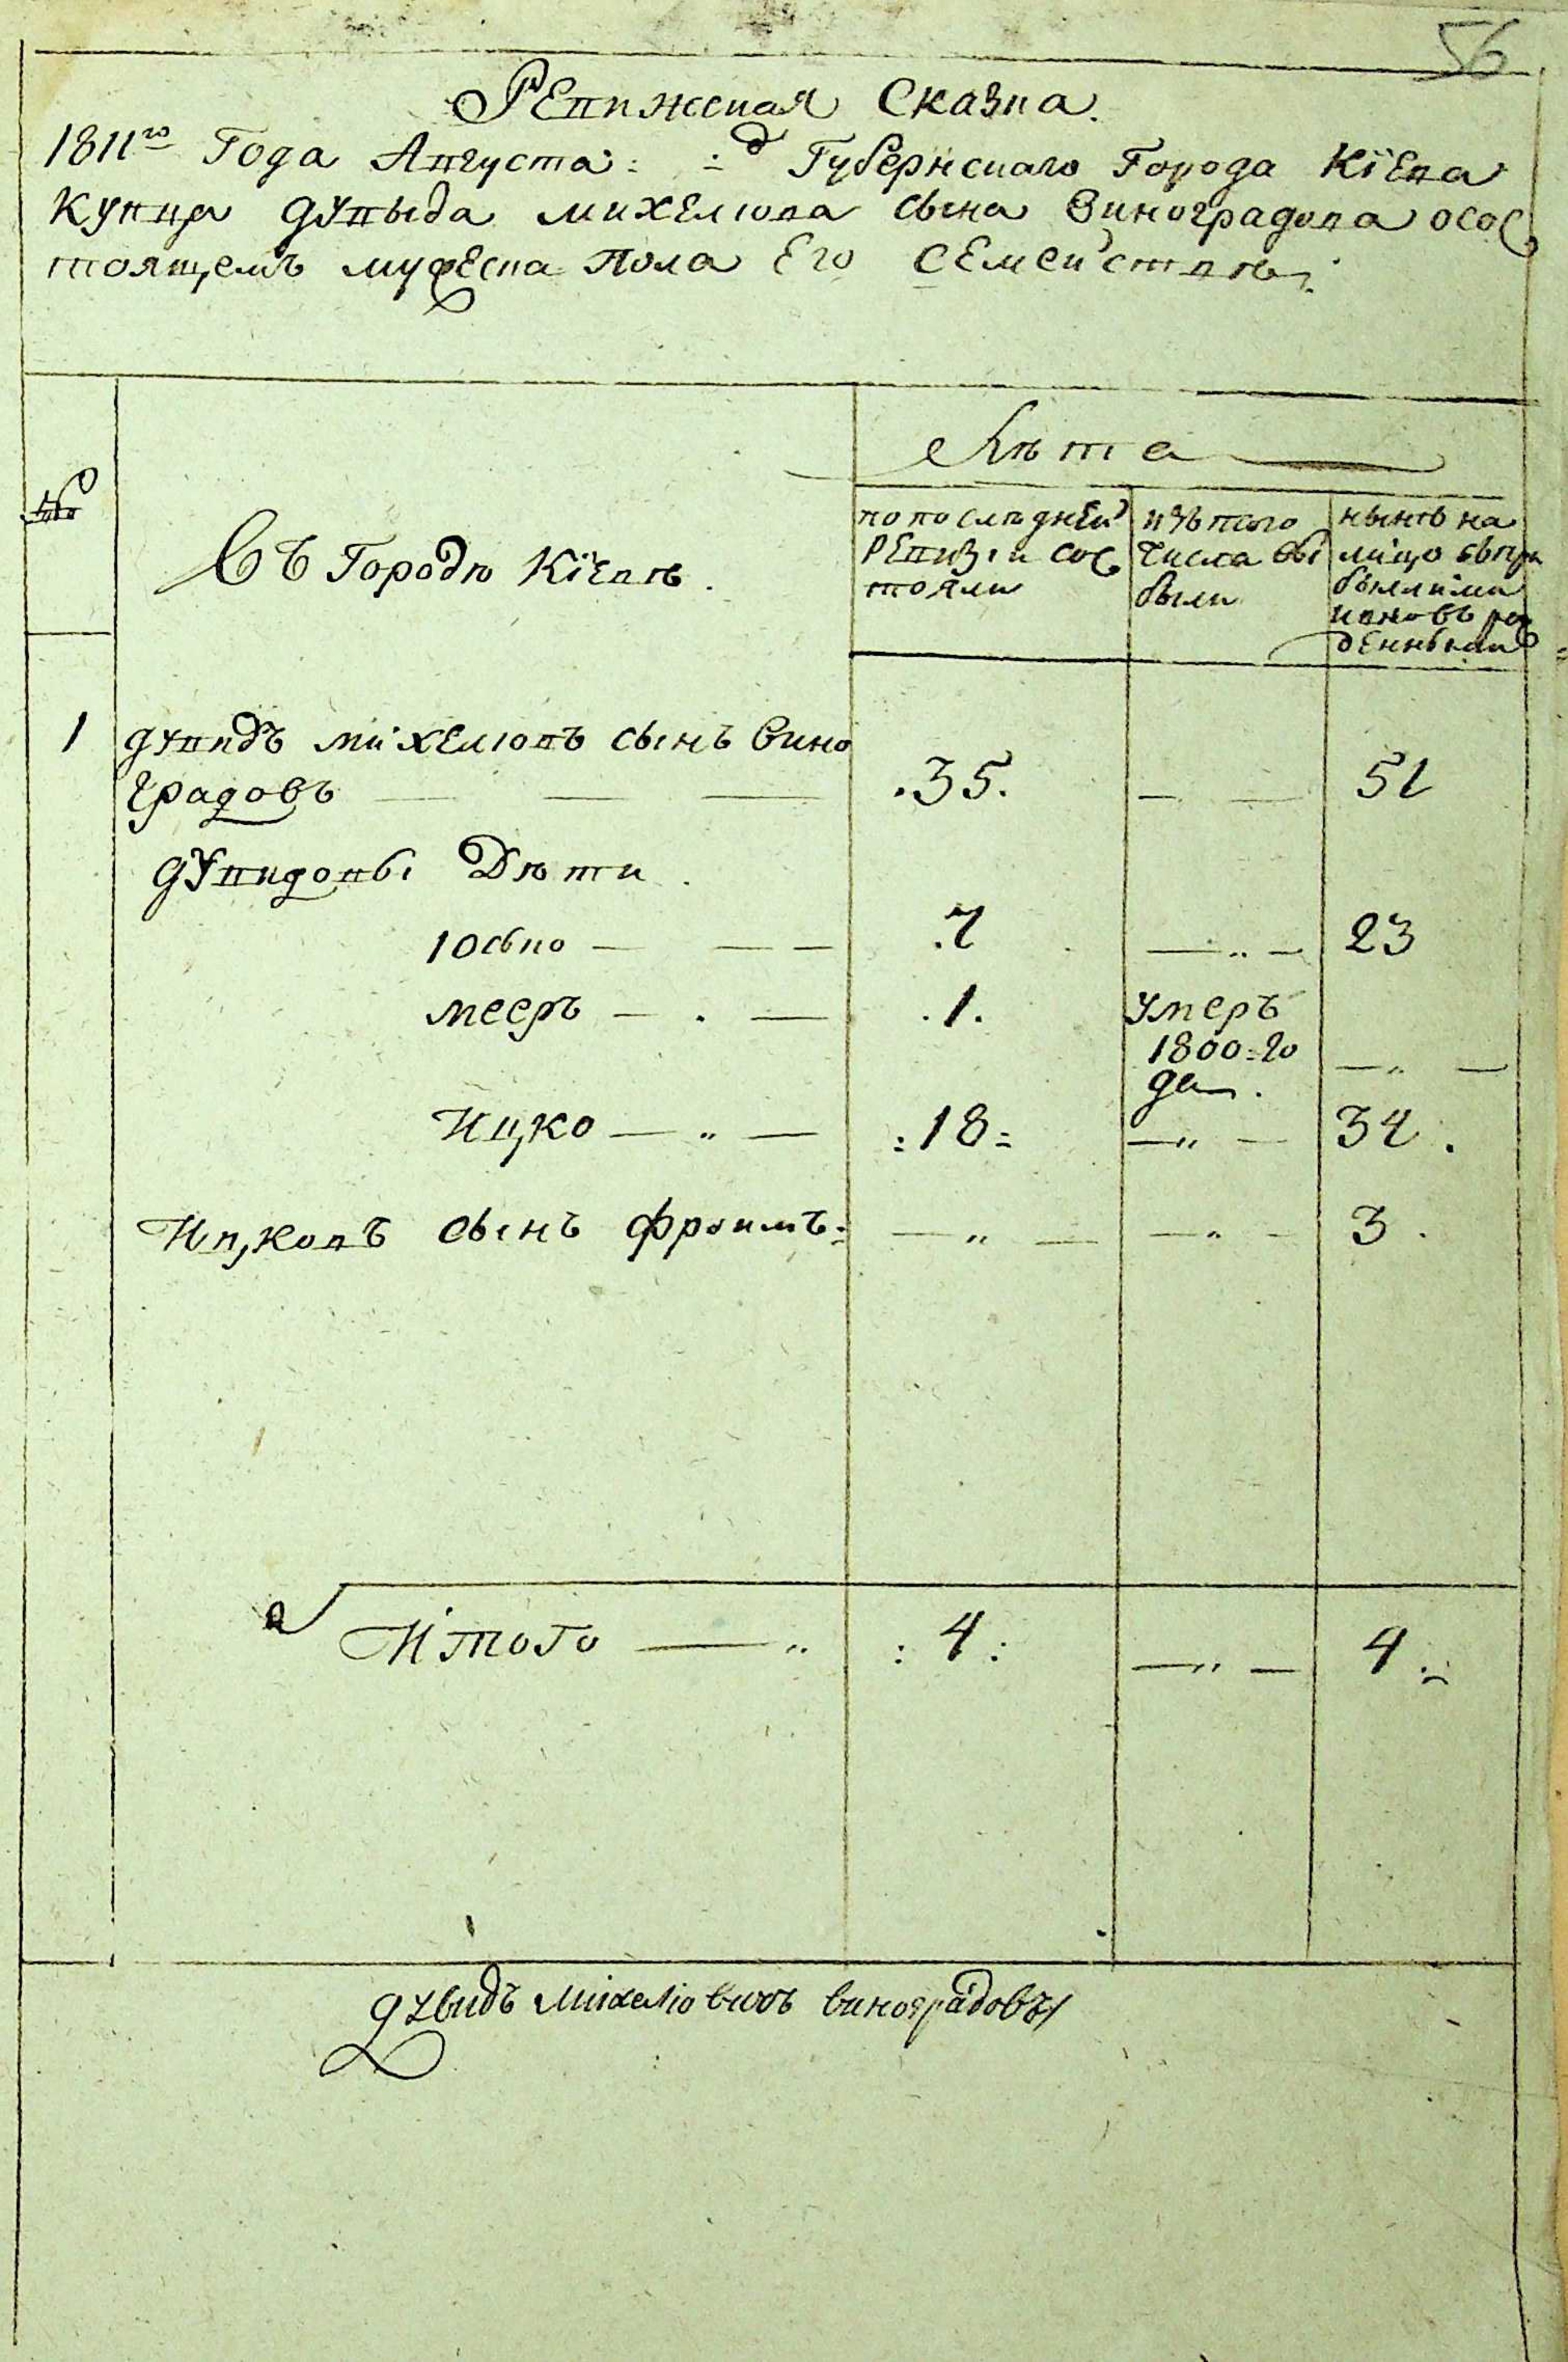 56
Ревижская Сказка.
1811го Года Августа: ÷ д Губернскаго Города Кіева
купца дувыда михелюва сына виноградова осос
тоящемъ мужеска пола Его Семействѣ:
№
Въ Городѣ Кіевѣ.
Лѣта
по последней
Ревизіи сос
тояли
изъ того
числа вы
были
нынѣ на
лицо съ при
былими
и вновь рож
денными
1
дувидъ михелювъ сынъ вино
градовъ — — — .35. — — 51
дувидовы Дѣти.
Юсько — — — .7 — „ — 23
мееръ — . — .1. умеръ
1800=го
да. — „ —
Ицко — „ — :18= — „ — 34.
Ицковъ сынъ фроимъ: — „ — — „ — 3.
Итого — „ : 4: — „ — 4.
дувидъ михелювичъ виноградовъ